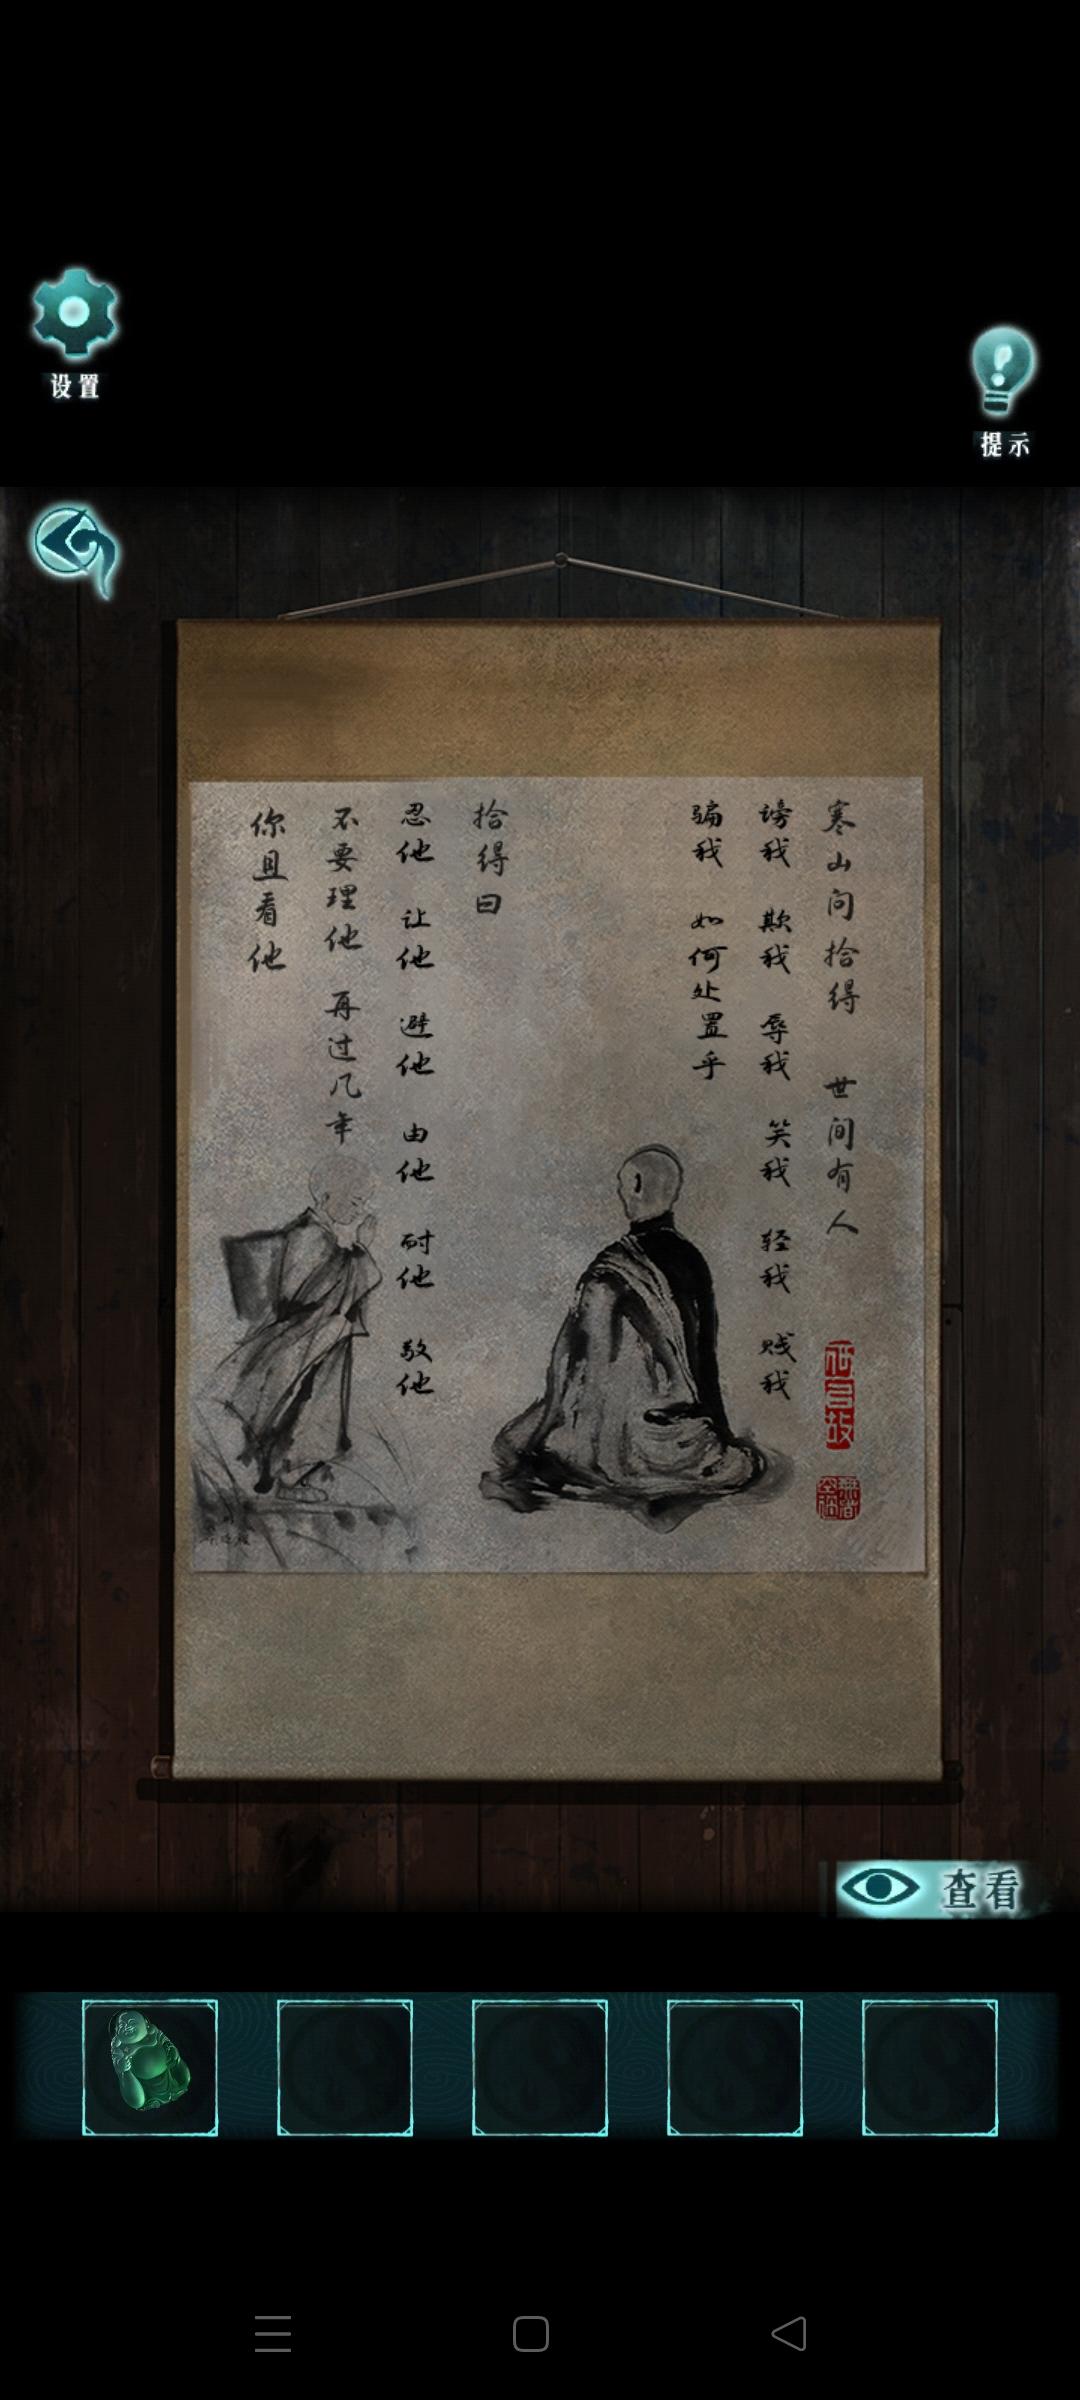 设置
提示
寒山问拾得 世间有人
谤我 欺我 辱我 笑我 轻我 贱我
骗我 如何处置乎
拾得曰
忍他 让他 避他 由他 耐他 敬他
不要理他 再过几年
你且看他
查看